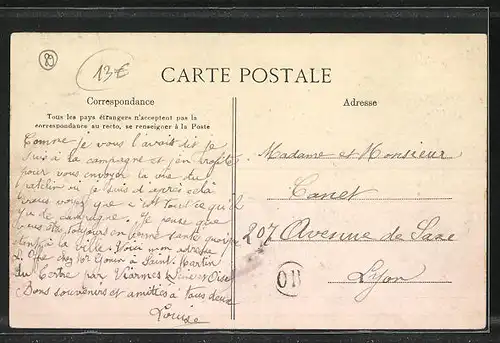 89
13€
CARTE POSTALE
Correspondance
Adresse
Tous les pays étrangers n'acceptent pas la
correspondance au recto, se renseigner à la Poste
Comme je vous l'avait dit je
suis à la campagne et j'en profite
pour vous envoyer la vue du
patelin où je suis d'après celà
vous voyez que c'est tout ce qu'il
y a de campagne. Je pense que
vous être toujours en bonne santé quoique
dans la ville. Voici mon adresse
chez Mr Gouin à Saint Martin
du Tertre par Viarmes Seine et Oise
Bons souvenirs et amitiés à tous deux
Louise
Madame et Monsieur
Canet
207 Avenue de Saxe
Lyon
OR